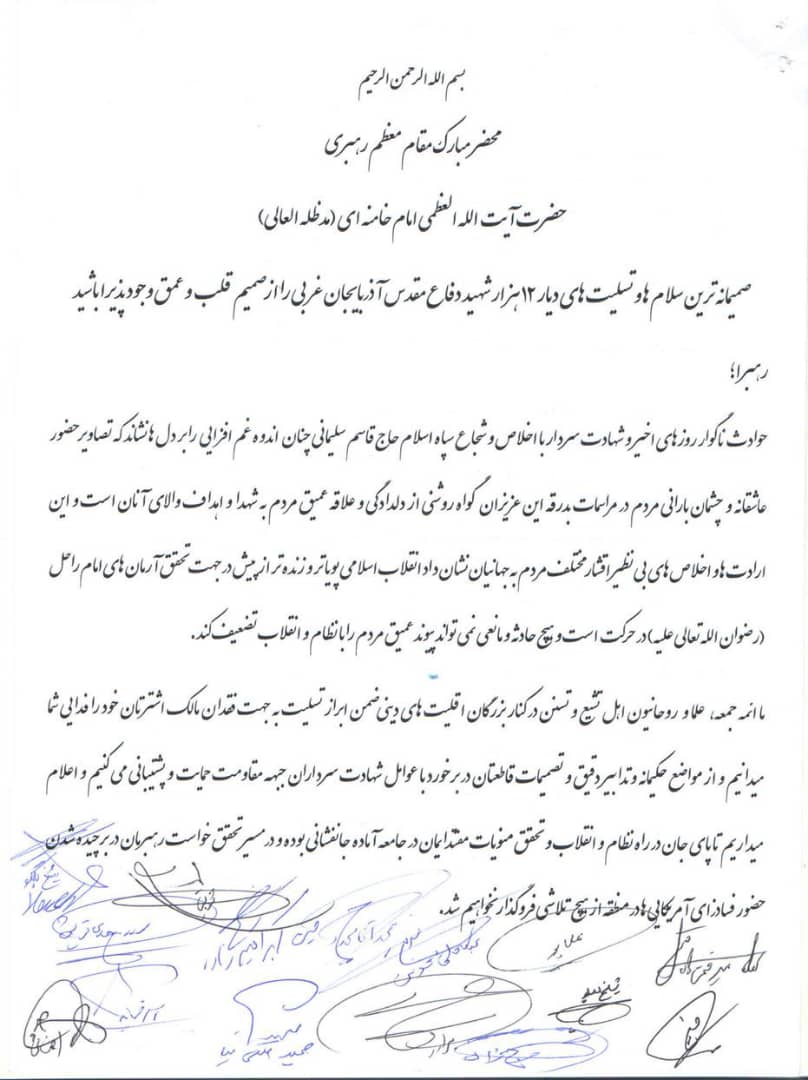 بسم الله الرحمن الرحیم
محضر مبارک مقام معظم رهبری
حضرت آیت الله العظمی امام خامنه ای (مدظله العالی)
صمیمانه ترین سلام ها و تسلیت های دیار ۱۲ هزار شهید دفاع مقدس آذربایجان غربی را از صمیم قلب و عمق وجود پذیرا باشید
رهبرا؛
حوادث ناگوار روزهای اخیر و شهادت سردار با اخلاص و شجاع سپاه اسلام حاج قاسم سلیمانی چنان اندوه غم افزایی را بر دل ها نشاند که تصاویر حضور
عاشقانه و چشمان بارانی مردم در مراسمات بدرقه این عزیزان گواه روشنی از دلدادگی و علاقه عمیق مردم به شهدا و اهداف والای آنان است و این
ارادت ها و اخلاص های بی نظیر اقشار مختلف مردم به جهانیان نشان داد انقلاب اسلامی پویاتر و زنده تر از پیش در جهت تحقق آرمان های امام راحل
(رضوان الله تعالی علیه) در حرکت است و هیچ حادثه و مانعی نمی تواند پیوند عمیق مردم را با نظام و انقلاب تضعیف کند.
ما ائمه جمعه، علما و روحانیون اهل تشیع و تسنن در کنار بزرگان اقلیت های دینی ضمن ابراز تسلیت به جهت فقدان مالک اشترتان خود را فدایی شما
میدانیم و از مواضع حکیمانه و تدابیر دقیق و تصمیمات قاطعتان در برخورد با عوامل شهادت سرداران جبهه مقاومت حمایت و پشتیبانی می کنیم و اعلام
میداریم تا پای جان در راه نظام و انقلاب و تحقق منویات مقتدایمان در جامعه آماده جانفشانی بوده و در مسیر تحقق خواست رهبرمان در برچیده شدن
حضور فسادزای آمریکایی ها در منطقه از هیچ تلاشی فروگذار نخواهیم شد.